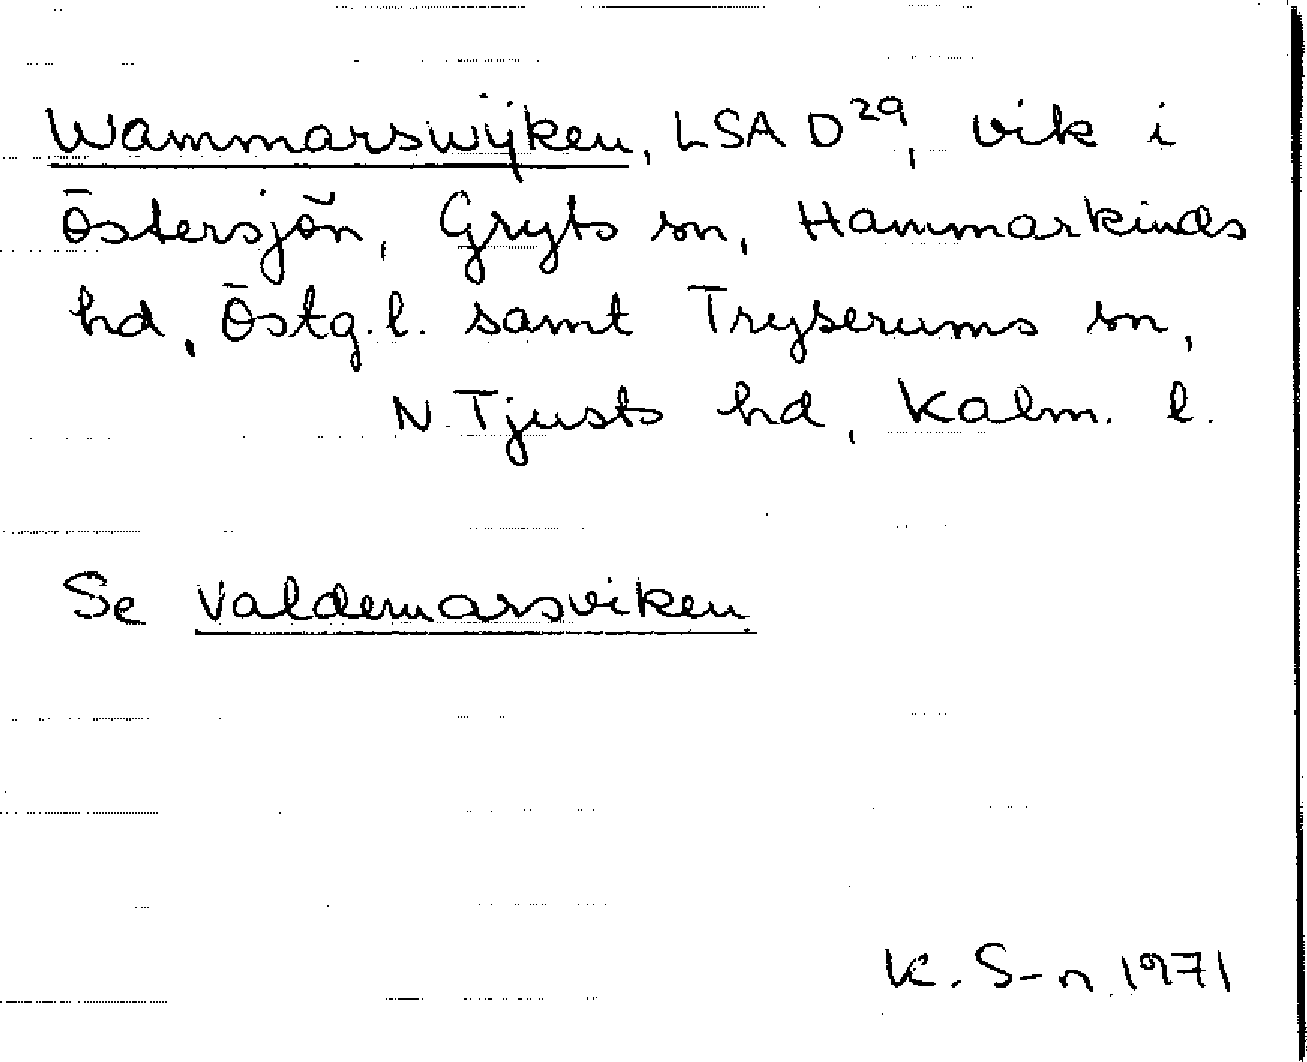 Wammarswijken, LSA D29, vik i
Östersjön, Gryts sn, Hammarkinds
hd, Östg. l. samt Tryserums sn,
N. Tjusts hd, Kalm. l.
Se Valdemarsviken
K. S-n 1971